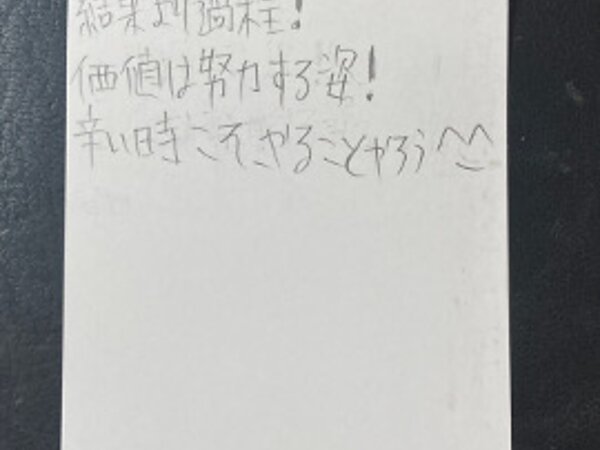 結果より過程!
価値は努力する姿!
辛い時こそやることやろう^^